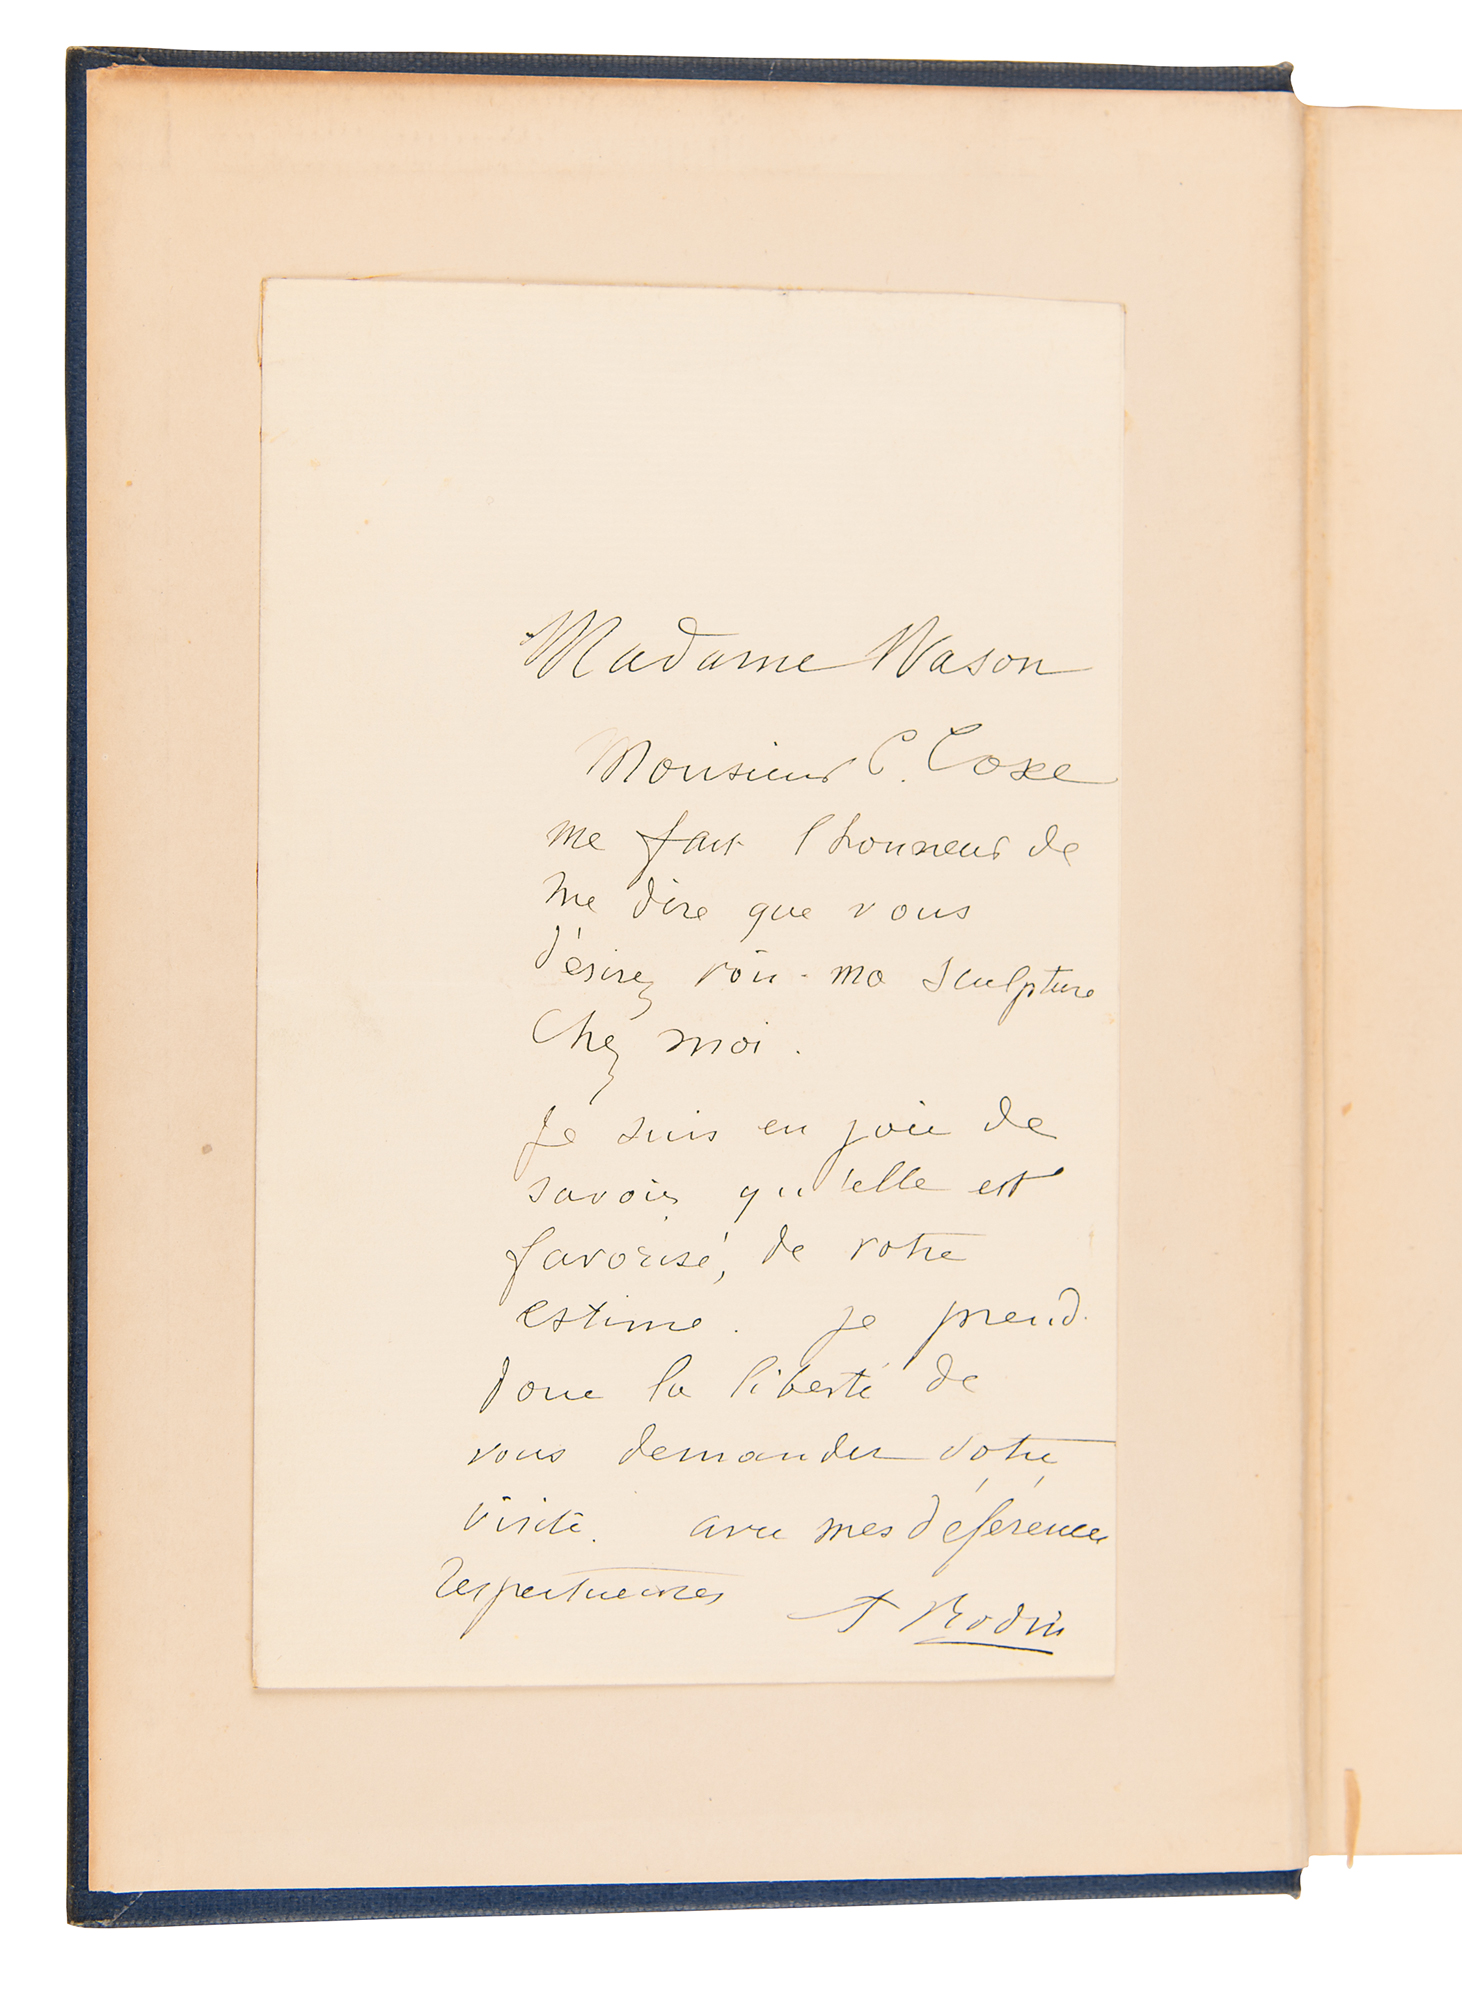 Madame Wason
Monsieur C. Coxe
me fait l honneur de
me dire que vous
désirez voir ma sculpture
Chez moi.
Je suis en joie de
savoir qu'elle est
favorisé, de votre
estime. je prend
donc la liberté de
vous demander votre
visite. avec mes déférences
respectueuses
A Rodin